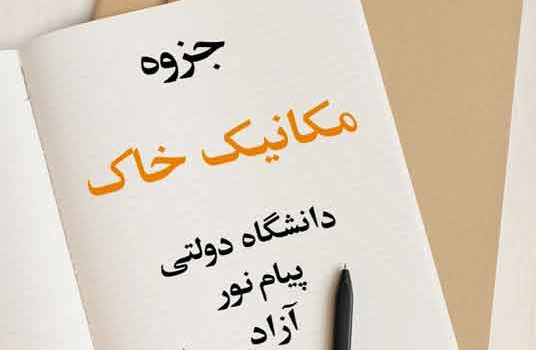 جزوه
مکانیک خاک
دانشگاه دولتی
پیام نور
آزاد